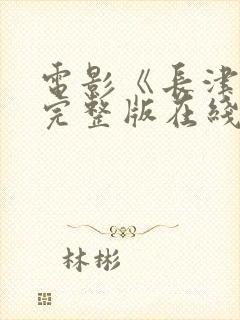 電影《長津
完整版在綫
林彬